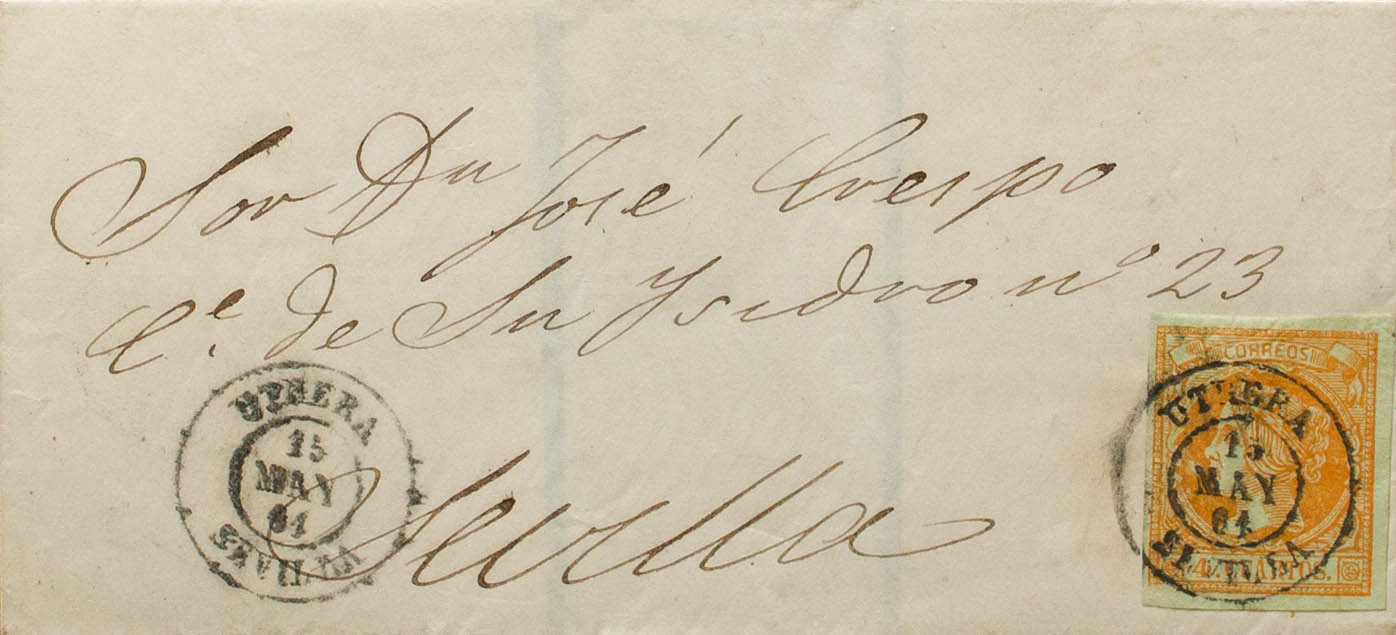 Sor Dn José Crespo
Ce. de Sn Ysidro nº 23
Sevilla
UTRERA
15
MAY
64
SEVILLA
CORREOS
UTRERA
15
MAY
64
SEVILLA
4 CUARTOS.